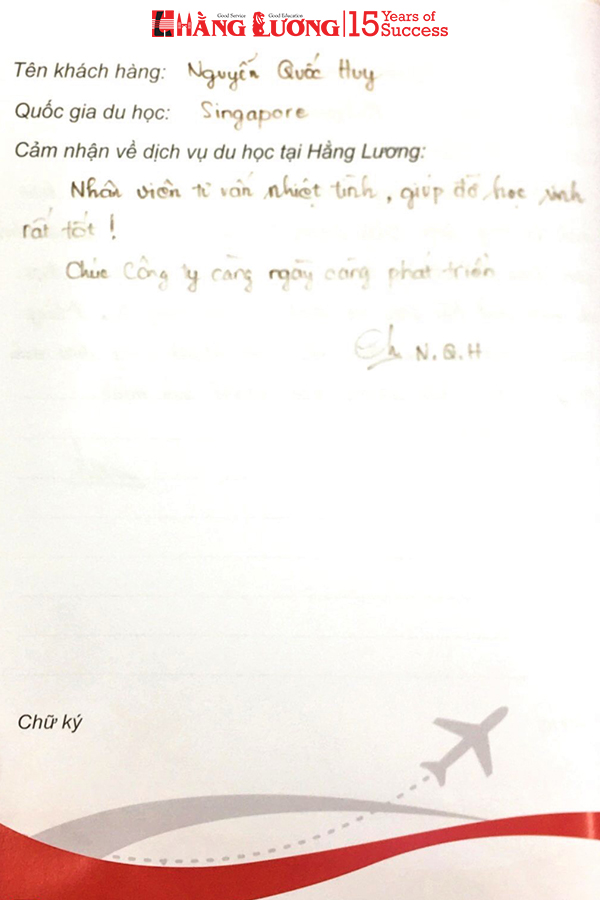 Good Service Good Education
HẰNG LƯƠNG | 15 Years of Success
Tên khách hàng: Nguyễn Quốc Huy
Quốc gia du học: Singapore
Cảm nhận về dịch vụ du học tại Hằng Lương:
Nhân viên tư vấn nhiệt tình, giúp đỡ học sinh
rất tốt!
Chúc Công ty càng ngày càng phát triển
N.Q.H
Chữ ký